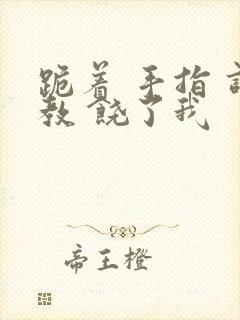 跪着 手指 
教 饶了我
帝王橙